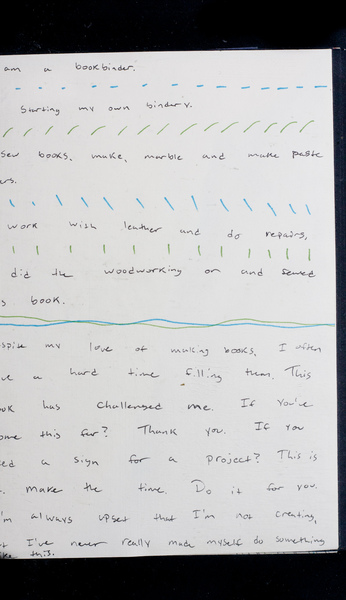 am a bookbinder.
Starting my own bindery.
sew books, make, marble and make paste
ers.
work with leather and do repairs,
did the woodworking on and sewed
s book.
spise my love of making books, I often
ve a hard time filling them. This
ook has challenged me. If you've
ome this far? Thank you. If you
ed a sign for a project? This is
make the time. Do it for you.
'm always upset that I'm not creating,
t I've never really made myself do something
like this.